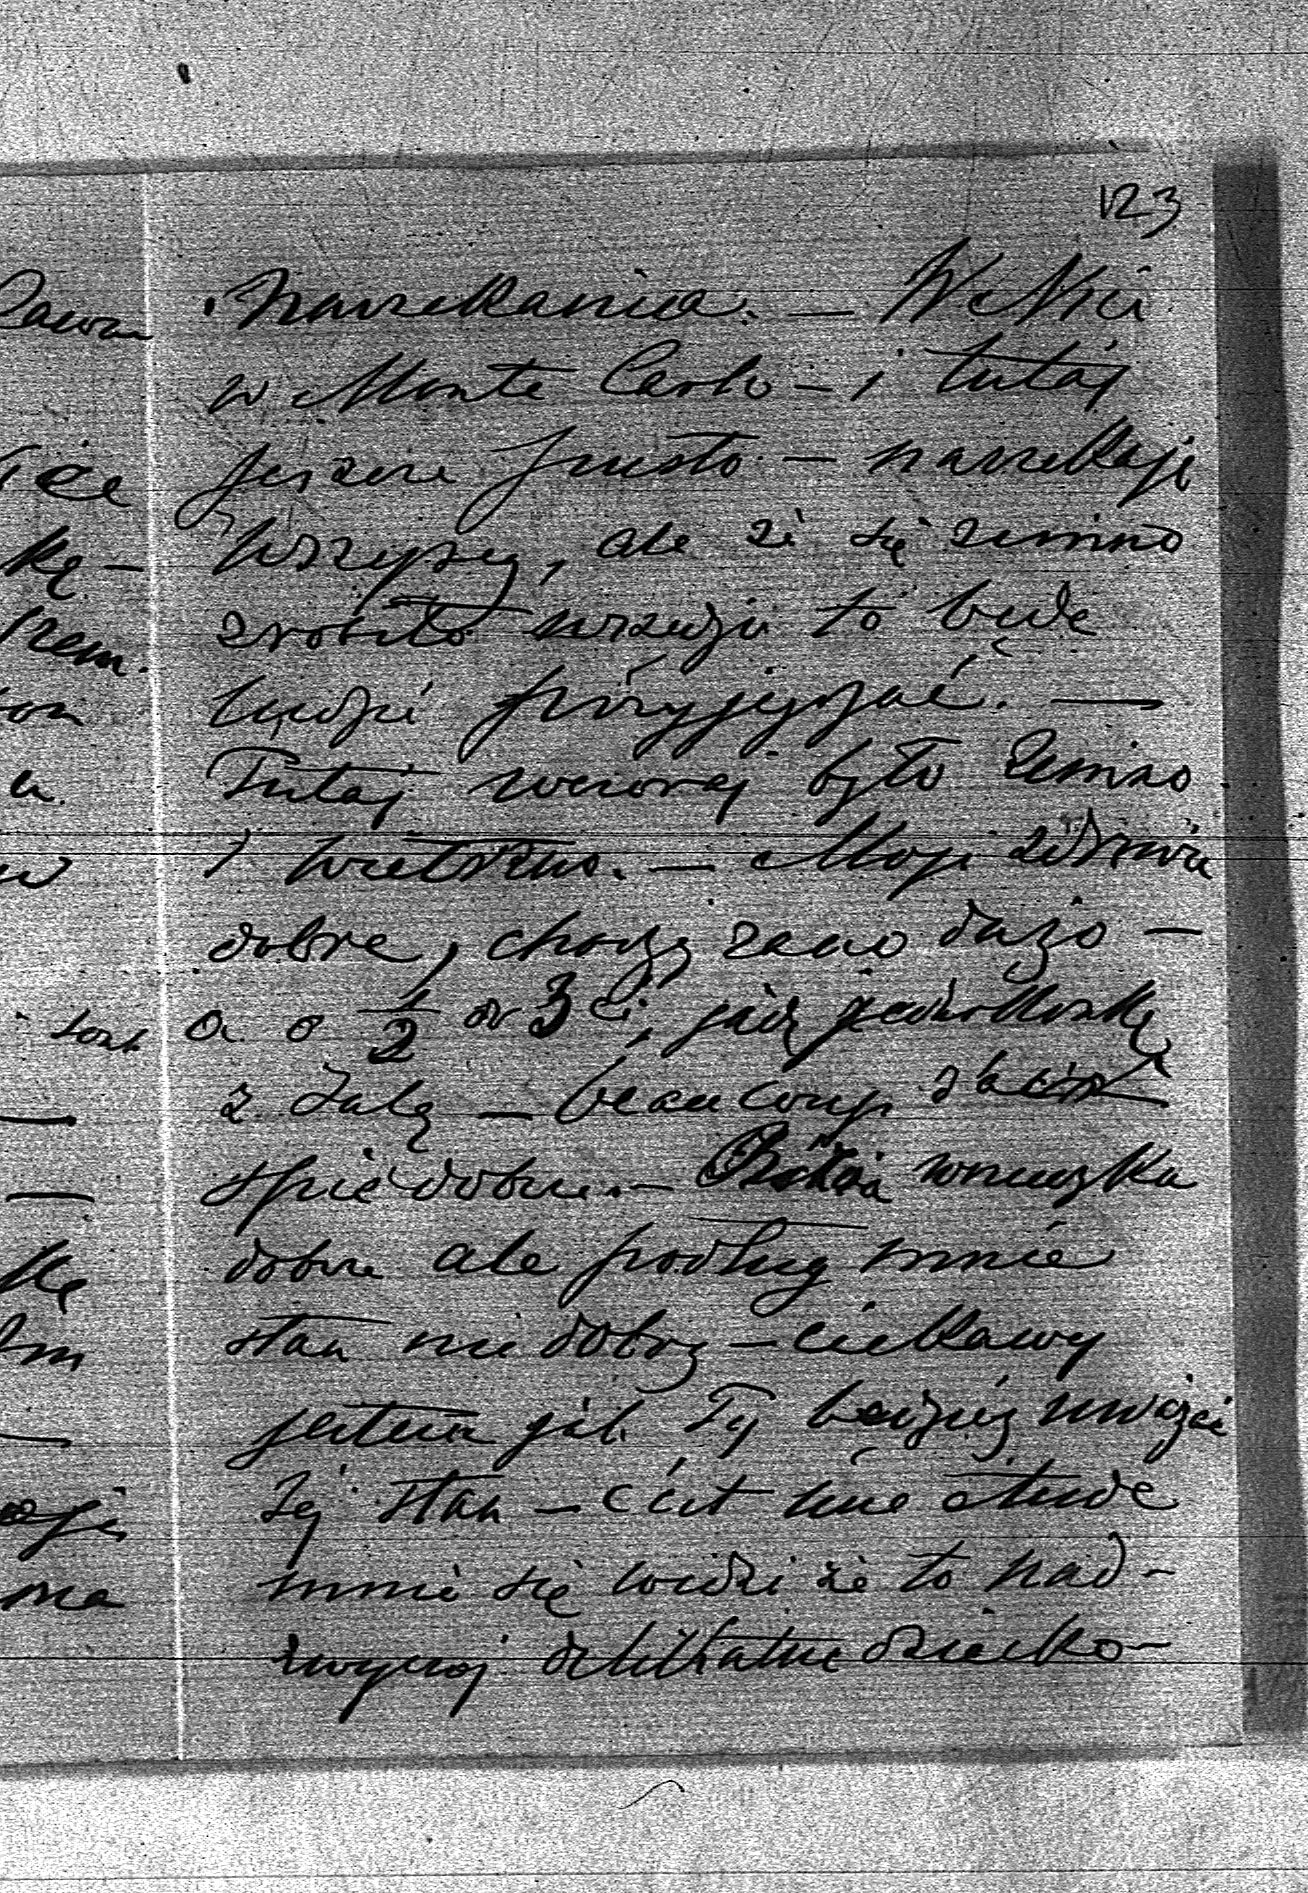 123
narzekania. — W Nici
w Monte Carlo — i tutaj
jeszcze pusto — narzekają
wszyscy, ale że się zimno
zrobiło wszędzie to będą
ludzie przyjeżdżać. —
Tutaj wczoraj było zimno
i wietrzno. — Moje zdrowie
dobre, chodzę rano dużo —
a o ½ do 3ci, jadę jednokonką
z Zulą — beaucoup d'air
śpię dobrze. — wnuczka
dobrze ale podług mnie
stan nie dobry — ciekawy
jestem jak Ty będziesz uważać
Jej stan — c'est une étude
mnie się widzi że to nad-
zwyczaj delikatne dziecko —